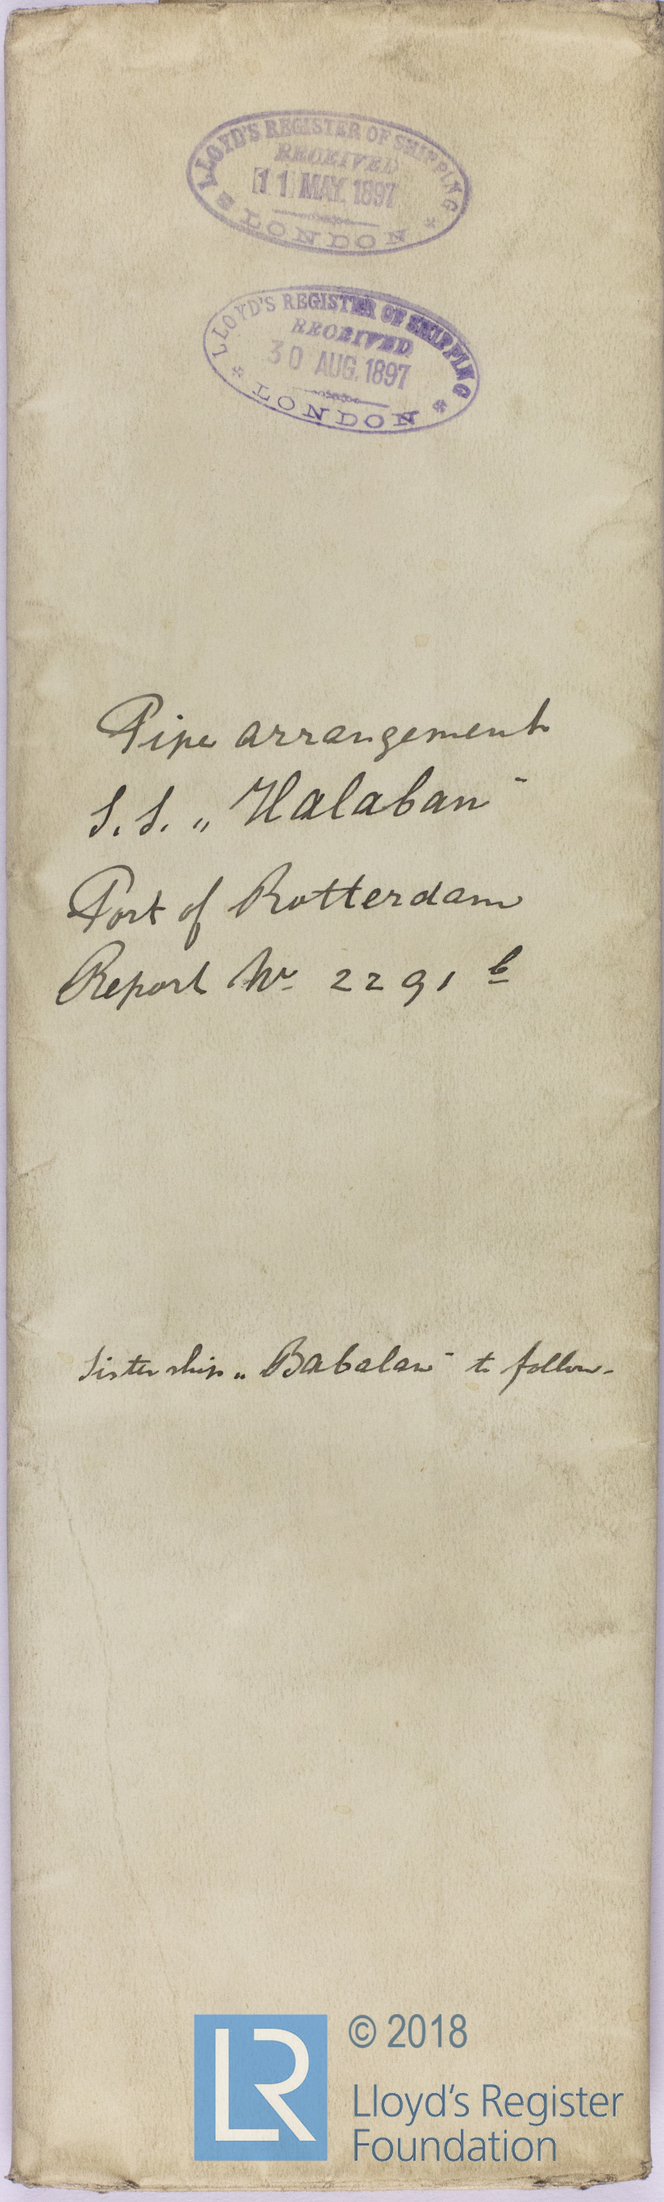 LLOYD'S REGISTER OF SHIPPING
RECEIVED
11 MAY. 1897
LONDON
LLOYD'S REGISTER OF SHIPPING
RECEIVED
30 AUG. 1897
LONDON
Pipe arrangement
S.S. „Halaban"
Port of Rotterdam
Report No. 2291 b
Sister ship „Babalan" to follow.
LR
© 2018
Lloyd's Register
Foundation